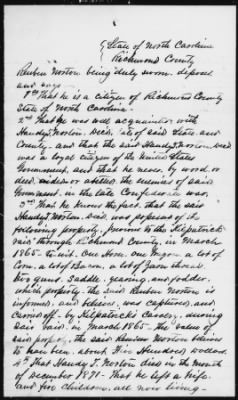 State of North Carolina
Richmond County
Reuben Norton being duly sworn, deposes
and says —
1st That he is a citizen of Richmond County
State of North Carolina —
2nd That he was well acquainted with
Handy Norton, Decd, late of said State and
County — and that the said Handy Norton, Decd
was a loyal citizen of the United States
Government, and that he never, by word, or
deed, aided or abetted the enemies of said
Government, in the late Confederate war,
3rd That he knows the fact, that the said
Handy Norton, Decd was possessed of the
following property, previous to the Kilpatrick
raid through Richmond County, in March
1865 — to wit: One Horse, One Wagon a lot of
Corn, a lot of Bacon, a lot of
gunt, Saddle, gearing, and fodder,
which property the said Reuben Norton is
informed, and believes, was captured, and
carried off, by Kilpatrick's Cavalry, during
said raid, in March 1865 — The value of
said property, the said Reuben Norton believes
to have been about Five Hundred Dollars,
4th That Handy T. Norton died in the month
of December 1871 — That he left a wife
and five Children, all now living —